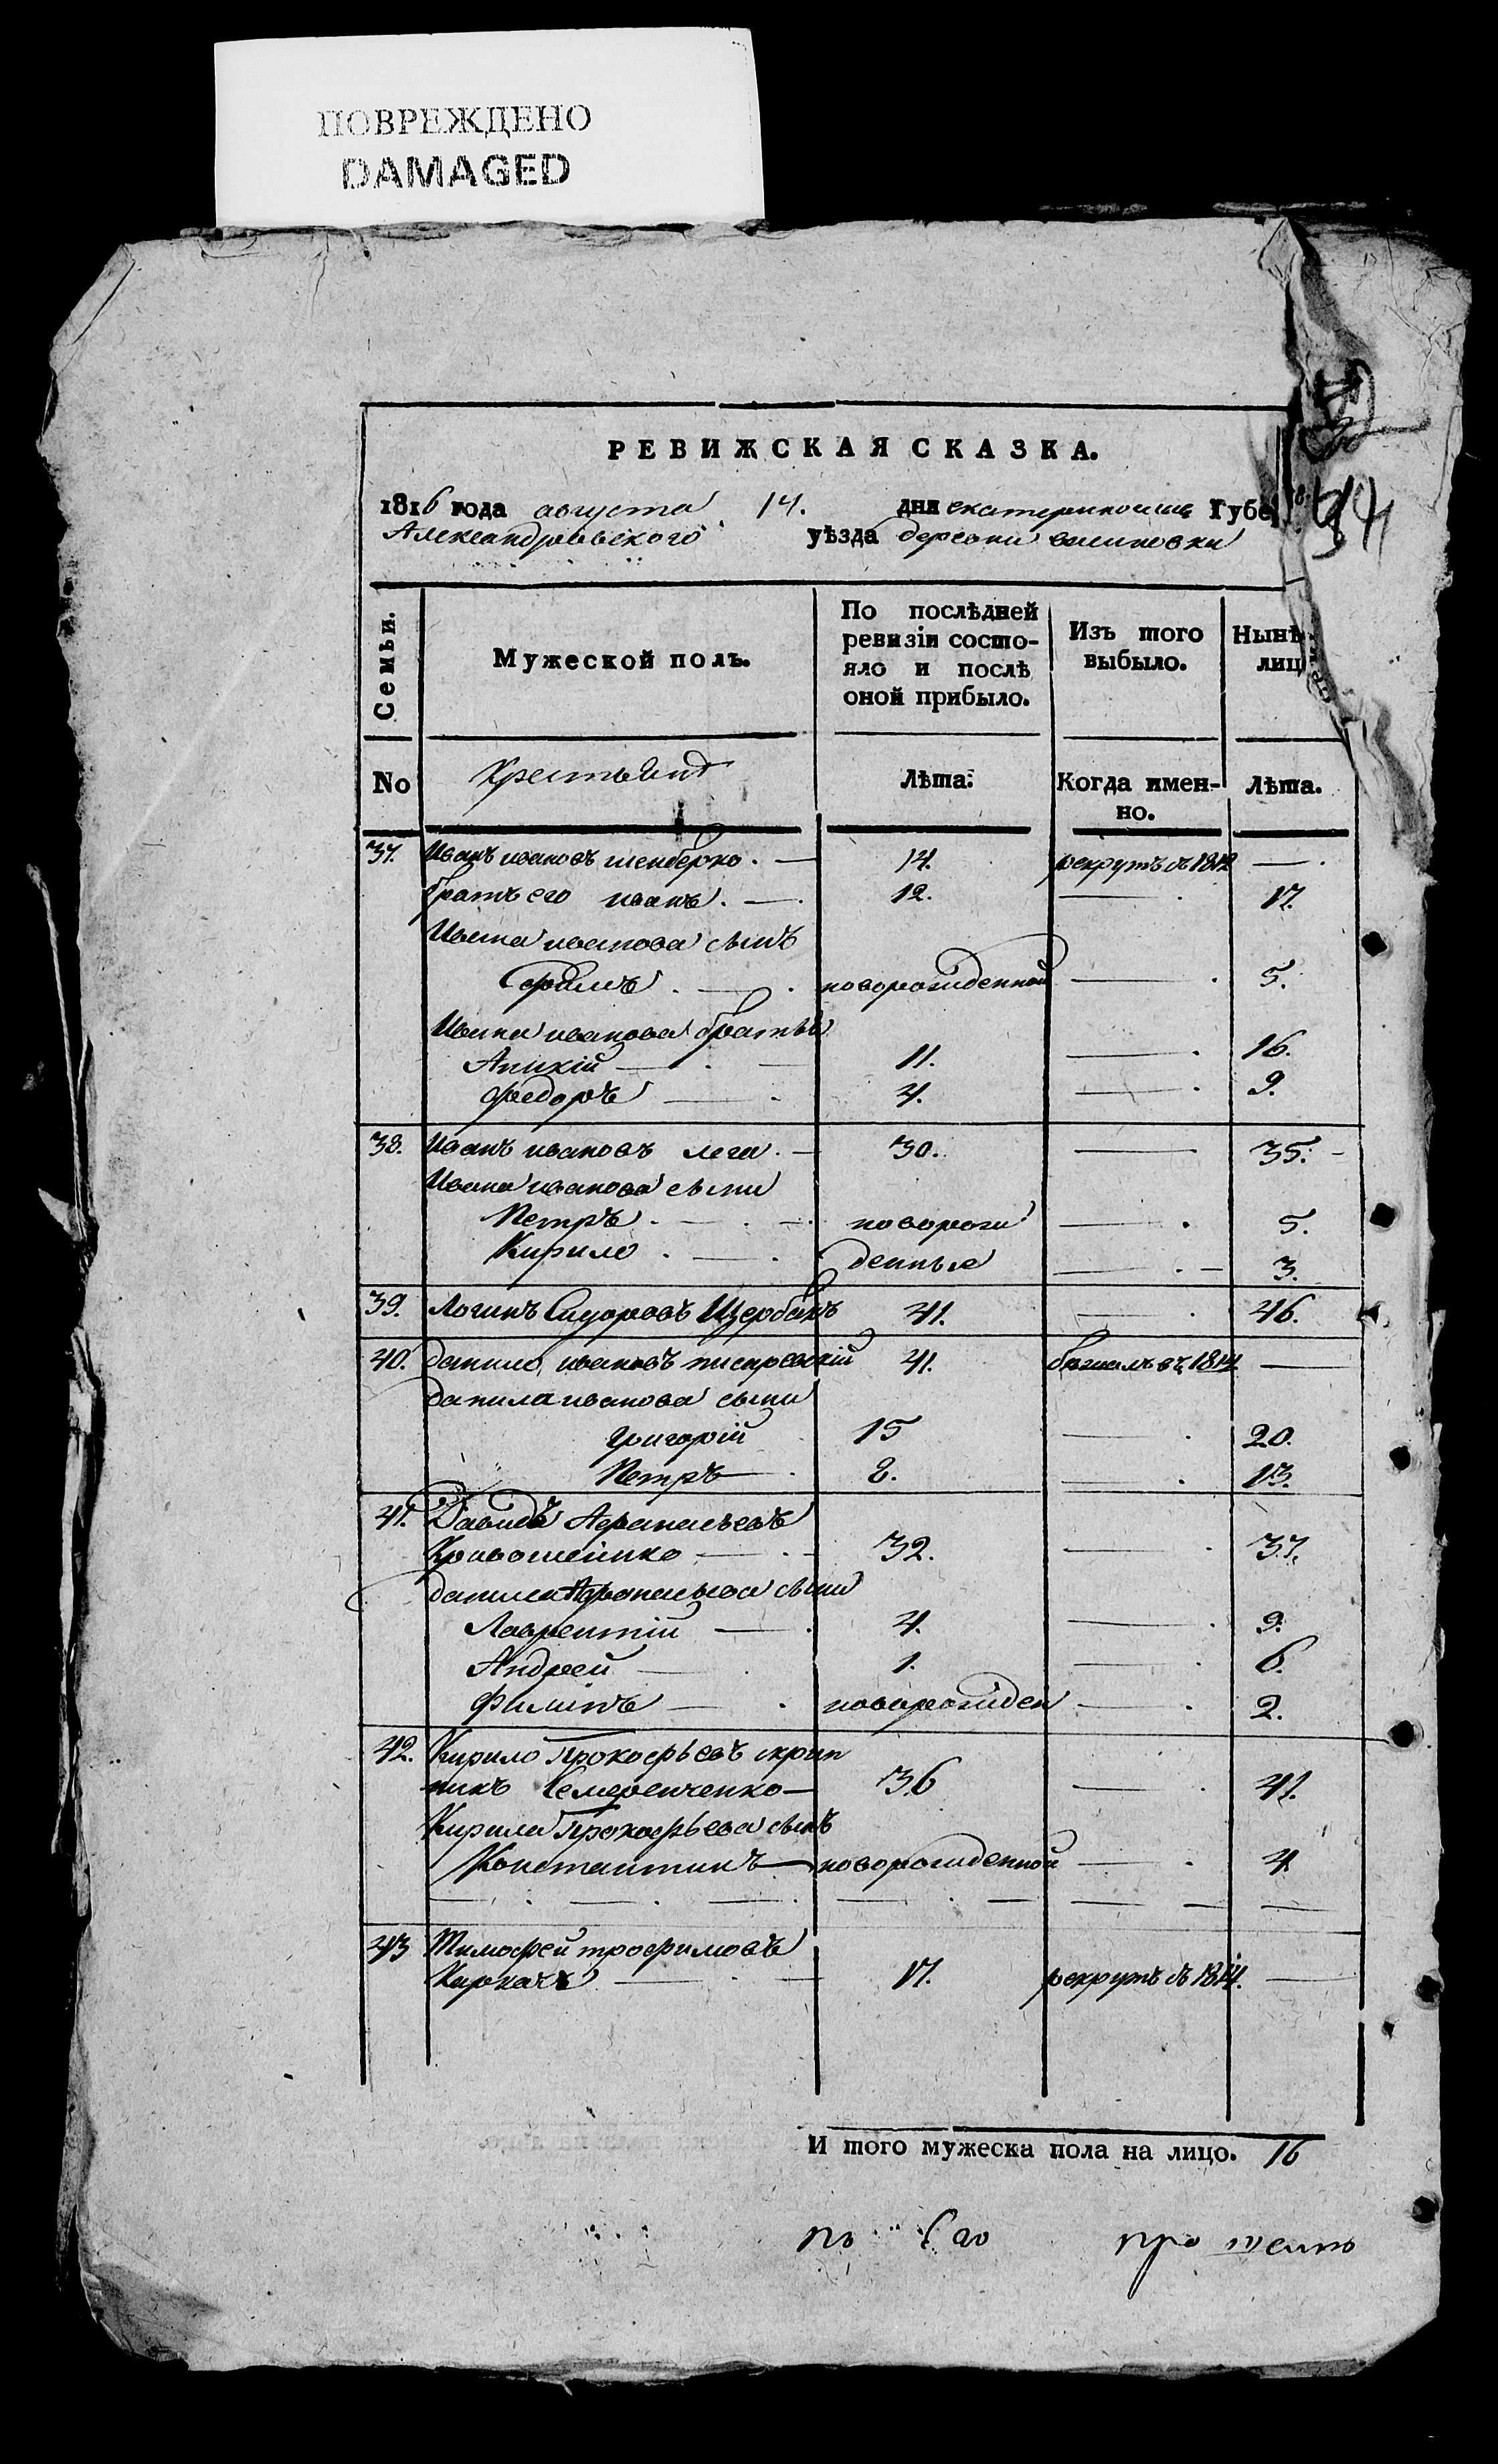 ПОВРЕЖДЕНО
DAMAGED
РЕВИЖСКАЯ СКАЗКА.
1816 года августа 14. дня екатеринослав Губе
Александровского уѣзда деревни
Семьи.
Мужеской полъ.
По послѣдней ревизіи состояло и послѣ оной прибыло.
Изъ того выбыло.
Нынѣ лиц
No Крестьянъ Лѣта: Когда именно. Лѣта.
37. Иванъ ивановъ 14. рекрутъ въ 1812 —
братъ его иванъ. — 12. — 17.
Ивана иванова сынъ
новорожденной — 5.
Ивана иванова братья
Аникій — 11. — 16.
Федоръ — 4. — 9.
38. Иванъ ивановъ лега. — 30. — 35.
Ивана иванова сыни
Петръ. — новорож — 5.
Кирило. — денные — 3.
39. Логинъ Сидоровъ Щербакъ 41. — 46.
40. данило ивановъ писаревскій 41. бѣжалъ въ 1814 —
данила иванова сыни
Григорій 15 — 20.
Петръ — 8. — 13.
41. Давидъ Афанасьевъ
Кривошеинко — 32. — 37.
данила Афанасьева сыни
Лаврентій — 4. — 9.
Андрей — 1. — 6.
Филипъ — новорожден — 2.
42. Кирило Прокофьевъ скрип
никъ — 36 — 41.
Кирила Прокофьева сынъ
Константинъ — новорожденной — 4.
43 Тимофей трофимовъ
Каркачъ — 17. рекрутъ въ 1814. —
И того мужеска пола на лицо. 16
по Его про шению